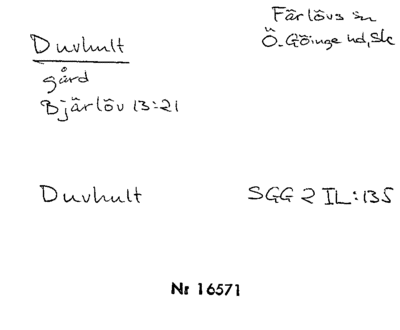 Duvhult
Färlövs sn
Ö. Göinge hd, Sk
gård
Bjärlöv 13:21
Duvhult
SGG 2 IL:135
Nr 16571